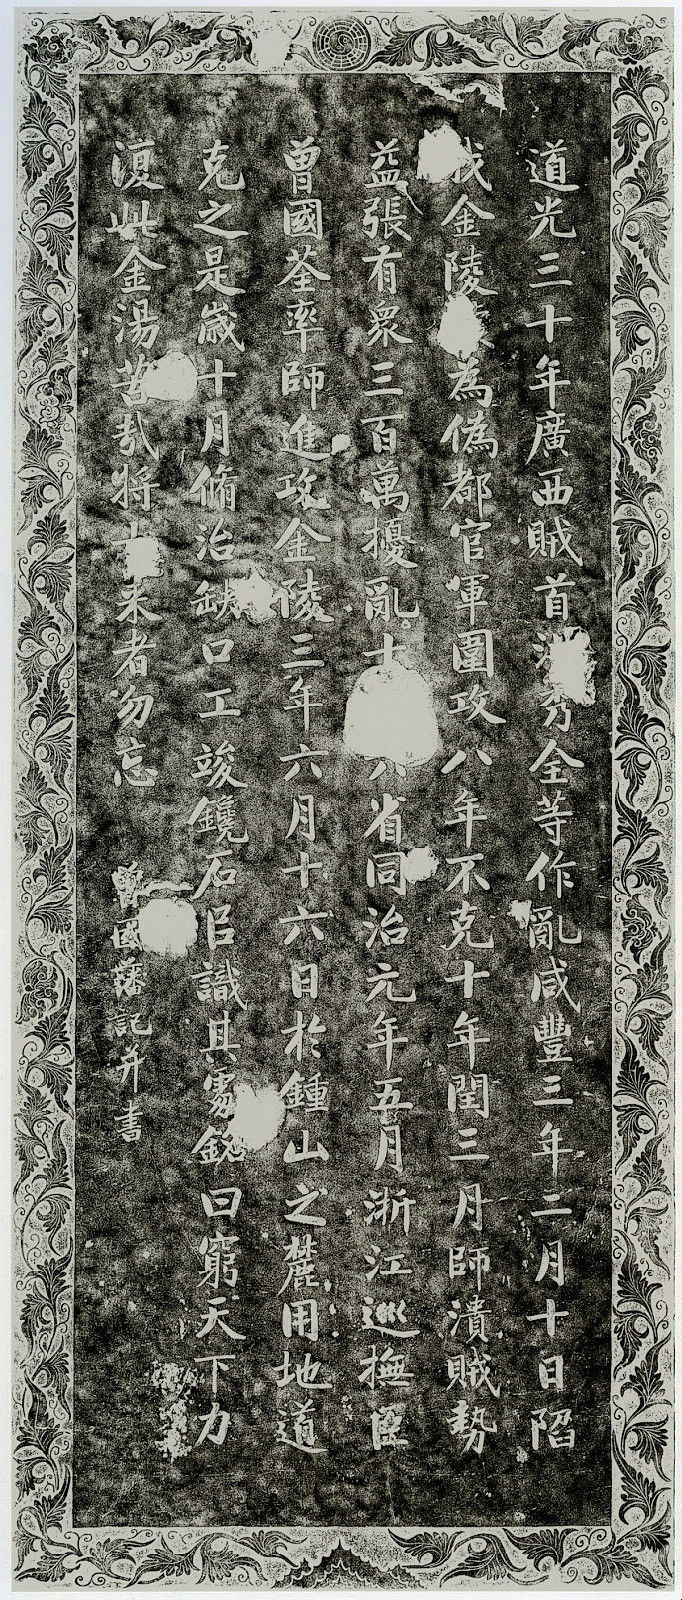 道光三十年廣西賊首洪秀全等作亂咸豐三年二月十日陷
我金陵為偽都官軍圍攻八年不克十年閏三月師潰賊勢
益張有眾三百萬擾亂十六省同治元年五月浙江巡撫臣
曾國荃率師進攻金陵三年六月十六日於鍾山之麓用地道
克之是歲十月脩治缺口工竣鑱石㠯識其處銘曰窮天下力
復此金湯苦哉將士來者勿忘
曾國藩記并書